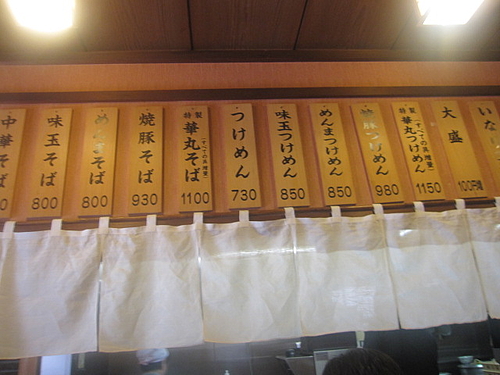 中華そば
味玉そば
800
めんまそば
800
焼豚そば
930
特製
華丸そば
(すべての具増量)
1100
つけめん
730
味玉つけめん
850
めんまつけめん
850
焼豚つけめん
980
特製
華丸つけめん
(すべての具増量)
1150
大盛
100円増
いな